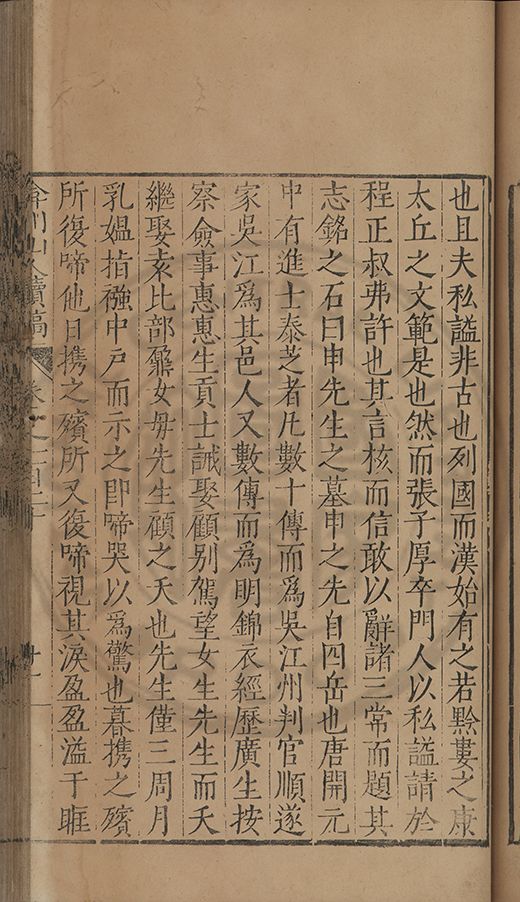 也且夫私謚非古也列國而漢始有之若黔婁之康
太丘之文範是也然而張子厚卒門人以私謚請於
程正叔弗許也其言核而信敢以辭諸三常而題其
志銘之石曰申先生之墓申之先自四岳也唐開元
中有進士泰芝者凡數十傳而爲吳江州判官順遂
家吳江爲其邑人又數傳而爲明錦衣經歷廣生按
察僉事惠惠生貢士誡娶顧别駕望女生先生而夭
繼娶袁比部鼐女毋先生顧之夭也先生僅三周月
乳媼指襁中戶而示之卽啼哭以爲驚也暮携之殯
所復啼他日携之殯所又復啼視其淚盈盈溢于睚
弇州山人續稿 卷之一百二十 十一